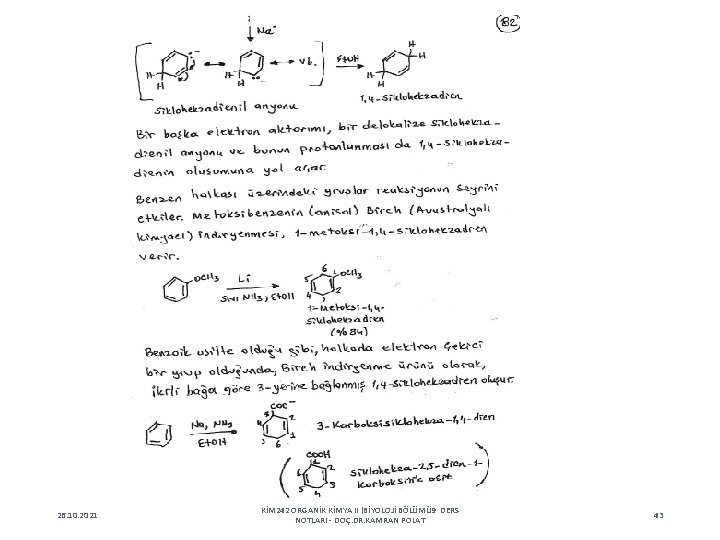 82
Na•
H
H
H
H
vb.
EtOH
H
H
H
H
sikloheksadienil anyonu
1,4-sikloheksadien
Bir başka elektron aktarımı, bir delokalize sikloheksa-
dienil anyonu ve bunun protonlanması da 1,4-sikloheksa-
dienin oluşumuna yol açar.
Benzen halkası üzerindeki gruplar reaksiyonun seyrini
etkiler. Metoksibenzenin (anisol) Birch (Avustralyalı
kimyacı) indirgenmesi, 1-metoksi-1,4-sikloheksadien
verir.
OCH3
Li
Sıvı NH3, EtOH
6
5
1
OCH3
4
2
3
1-Metoksi-1,4-
sikloheksadien
(%84)
Benzoik asitte olduğu gibi, halkada elektron çekici
bir grup olduğunda, Birch indirgenme ürünü olarak,
ikili bağa göre 3-yerine bağlanmış 1,4-sikloheksadien oluşur.
Na, NH3
EtOH
COO−
3
4
2
5
1
6
3-Karboksisikloheksa-1,4-dien
COOH
1
6
2
5
3
4
Sikloheksa-2,5-dien-1-
karboksilik asit
26.10.2021
KİM242 ORGANİK KİMYA II (BİYOLOJİ BÖLÜMÜ)- DERS
NOTLARI - DOÇ.DR.KAMRAN POLAT
43